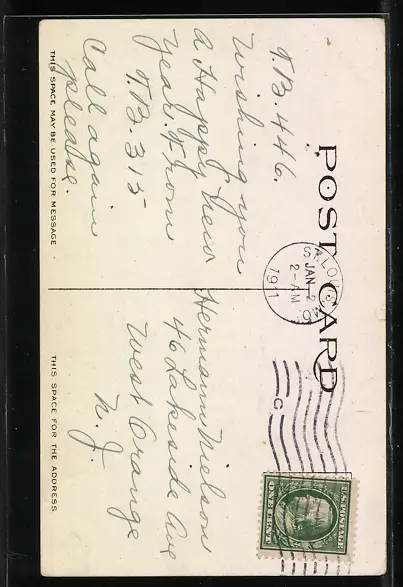 POST CARD
T.B. 446.
Wishing you
a Happy New
Year. From
T.B. 315
Call again
please.
THIS SPACE MAY BE USED FOR MESSAGE
ST. LOUIS
JAN 2
2-AM
1911
C
U.S. POSTAGE
ONE CENT
Hermann Nielson
46 Lakeside Ave
West Orange
N. J.
THIS SPACE FOR THE ADDRESS